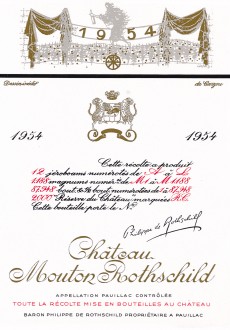 1954
Dessin inédit de Carzou
1954 1954
Cette récolte a produit
12 jéroboams numérotés de A à L
1.188 magnums numér. de M1 à M1188
et 1/2 bout. numérotées de 1 à
2000 "Réserve du Château" marquées R.C.
Cette bouteille porte le No
Philippe de Rothschild
Château
Mouton Rothschild
APPELLATION PAUILLAC CONTRÔLÉE
TOUTE LA RÉCOLTE MISE EN BOUTEILLES AU CHÂTEAU
BARON PHILIPPE DE ROTHSCHILD PROPRIÉTAIRE A PAUILLAC